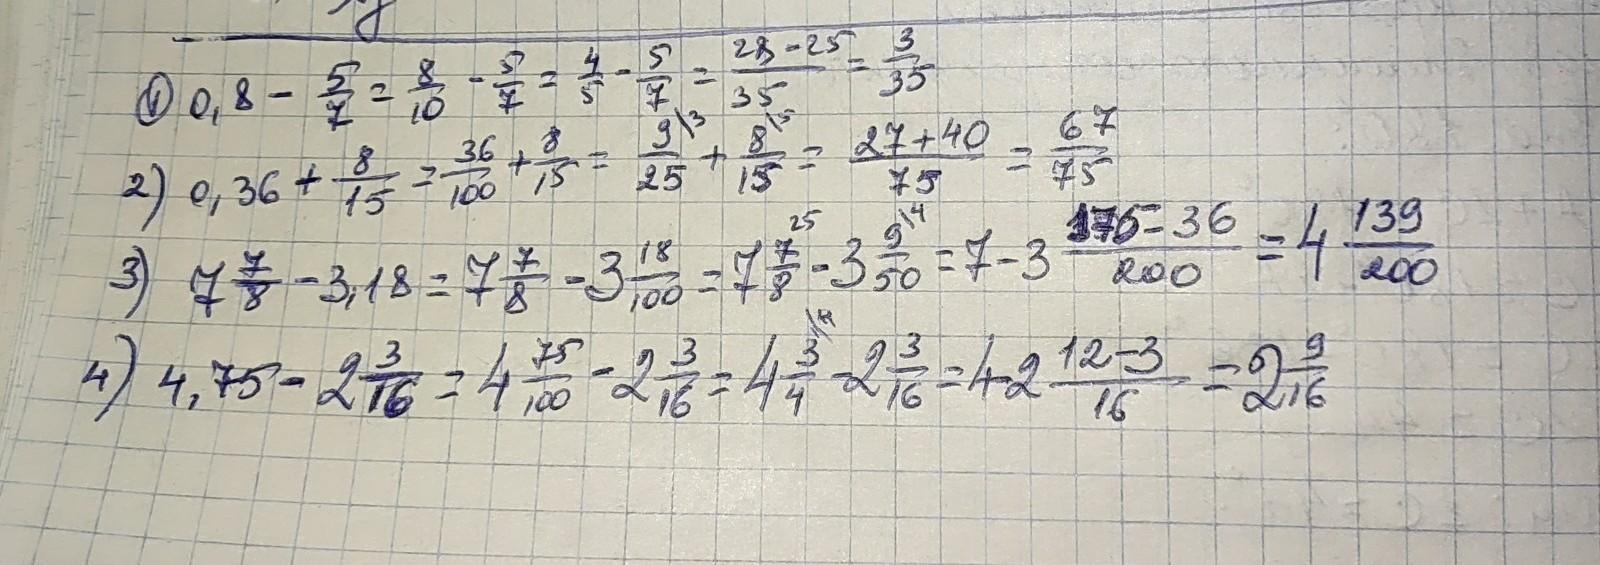 1) 0,8 - 5/7 = 8/10 - 5/7 = 4/5 - 5/7 = 28-25/35 = 3/35
2) 0,36 + 8/15 = 36/100 + 8/15 = 9\3/25 + 8\5/15 = 27+40/75 = 67/75
3) 7 7/8 - 3,18 = 7 7/8 - 3 18/100 = 7 7 25/8 - 3 9\4/50 = 7-3 175-36/200 = 4 139/200
4) 4,75 - 2 3/16 = 4 75/100 - 2 3/16 = 4 3\4/4 - 2 3/16 = 4-2 12-3/16 = 2 9/16